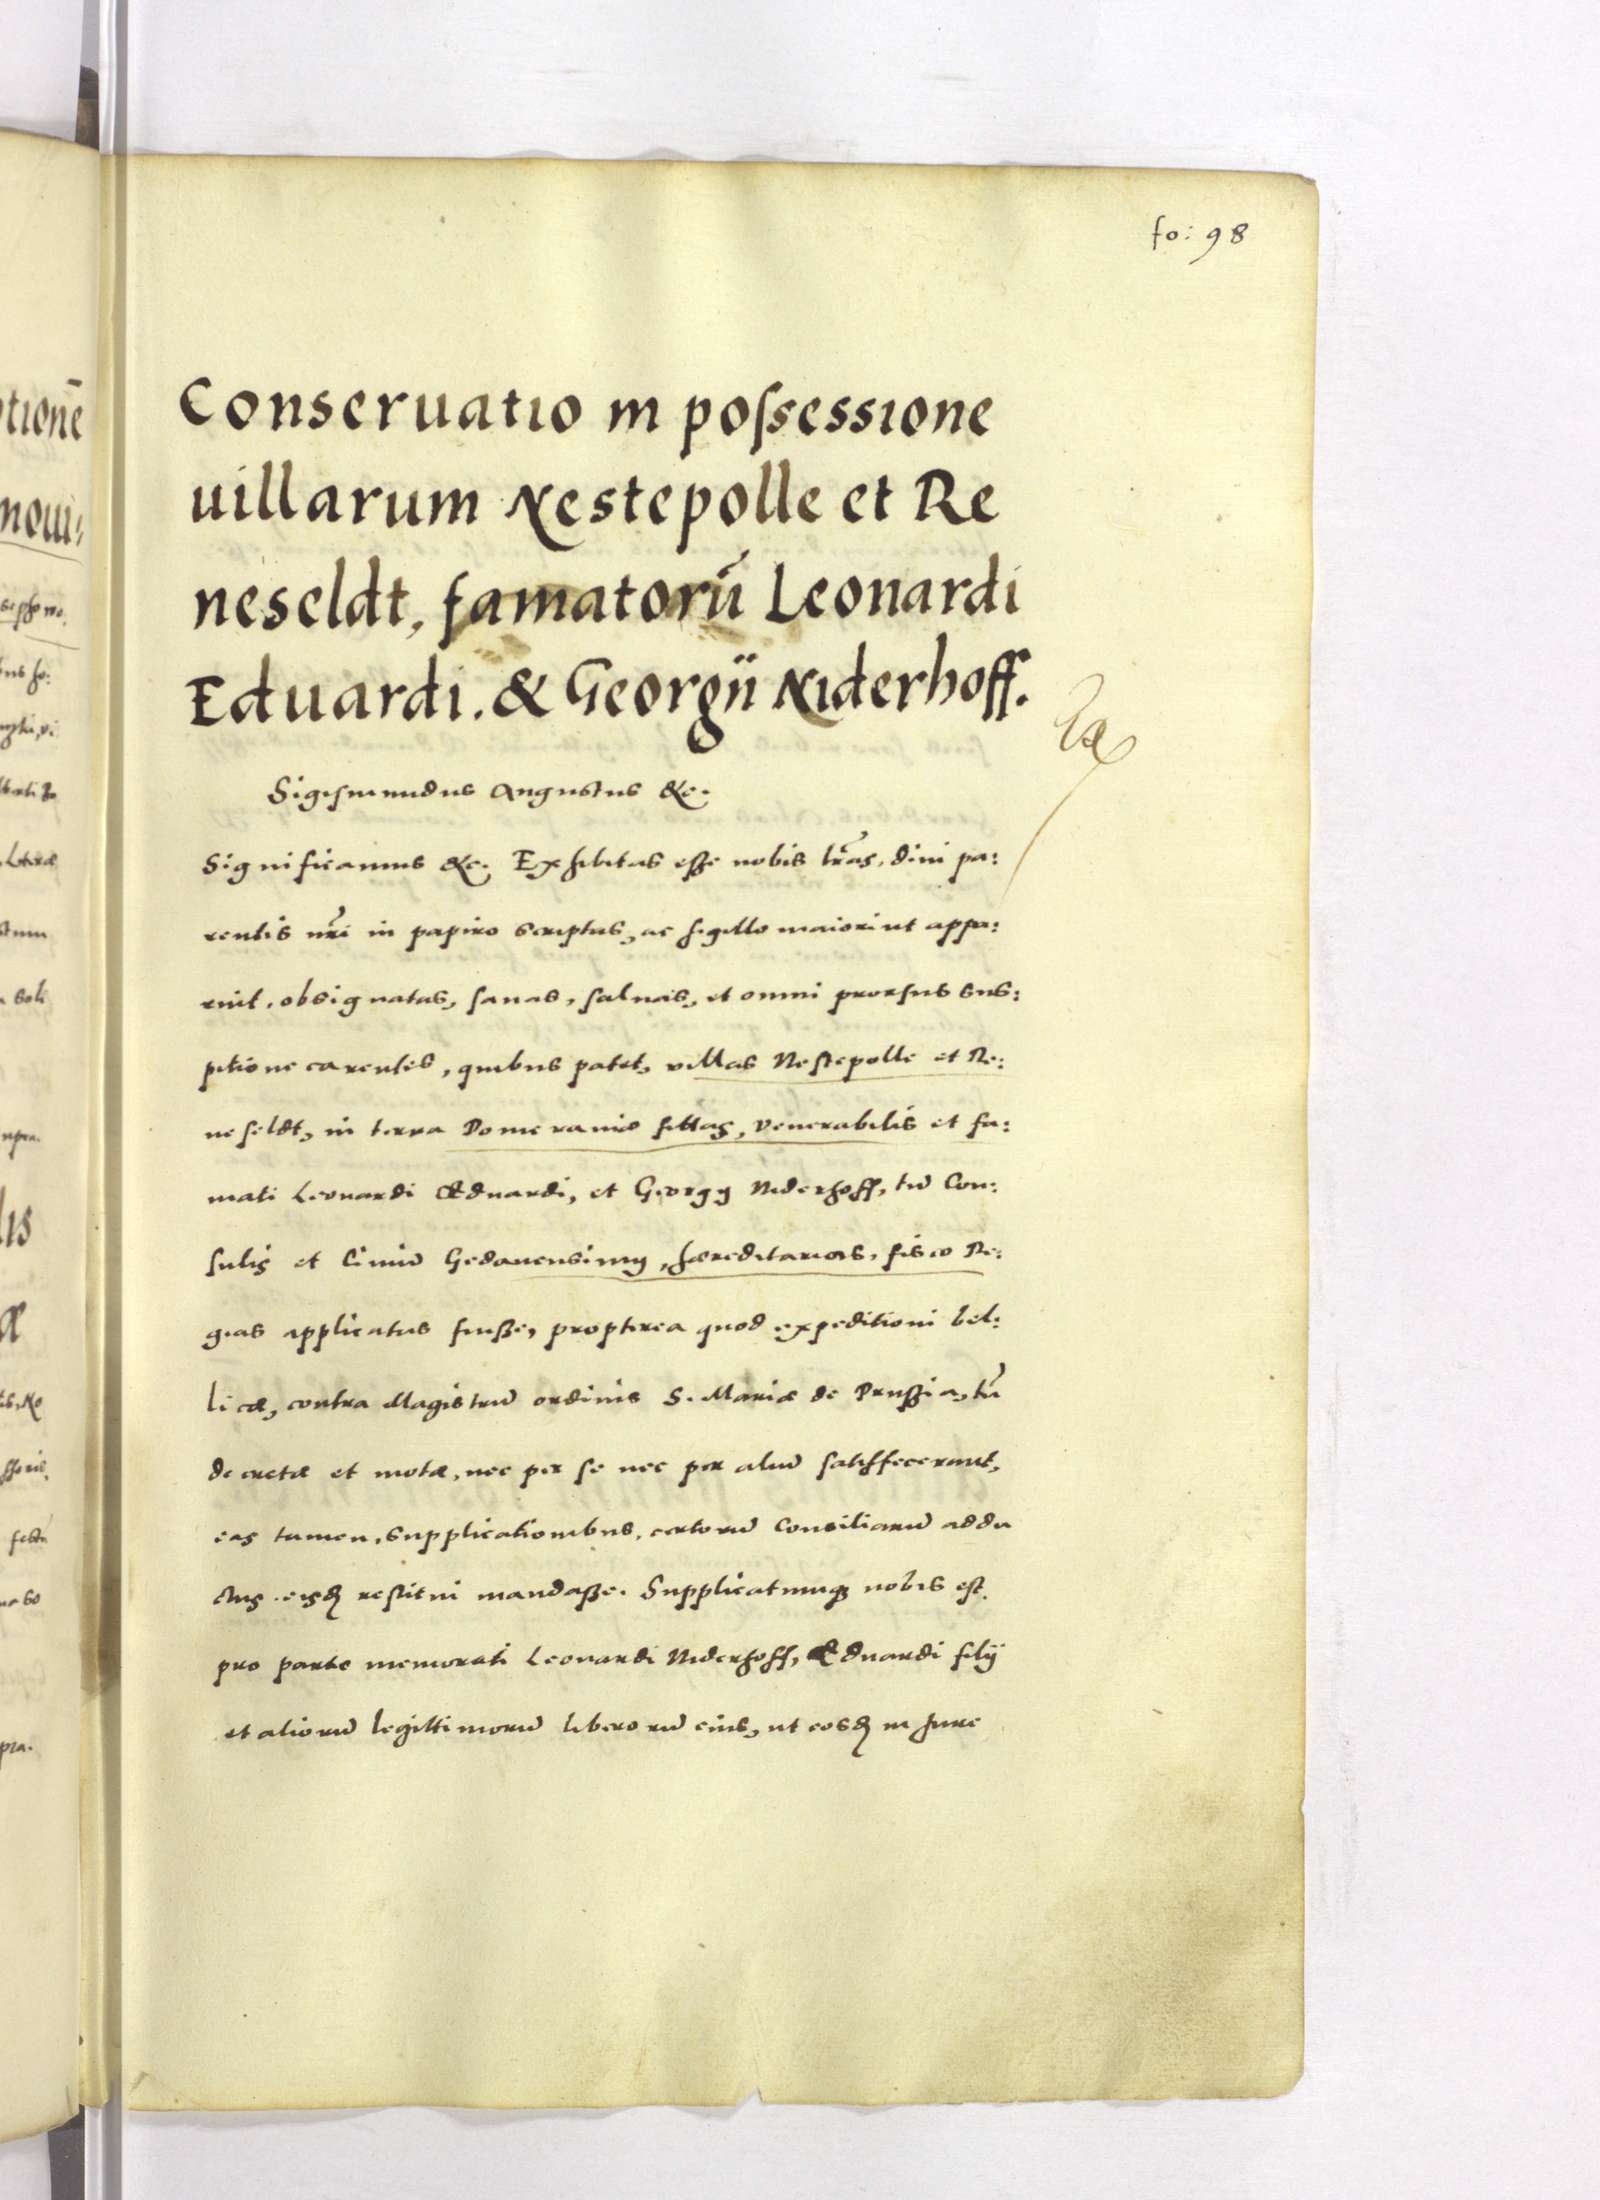 fo: 98
Conseruatio in possessione
uillarum Nestepolle et Re
neseldt, famatorũ Leonardi
Eduardi. & Georgii Niderhoff.
Sigismundus Augustus &c.
Significamus &c. Exhibitas esse nobis lr̃as, diui pa:
rentis nr̃i in papiro scriptas, ac sigillo maiori ut appa:
ruit, obsignatas, sanas, saluas, et omni prorsus sus:
pitione carentes, quibus patet, villas Nestepolle et Re:
neseldt, in terra Pomeraniæ sittas, Venerabilis et fa:
mati Leonardi Eduardi, et Georgy Niderhoff, tũ Con:
sulis et Ciuiũ Gedanensium, hæreditarias, fisco Re:
gias applicatas fuisse, propterea quod expeditioni bel:
licæ, contra Magistrũ ordinis S. Mariæ de Prussia, tũ
decretæ et motæ, nec per se nec per aliũ satisfecerant,
eas tamen, supplicationibus, certorũ Consiliariũ addu
ctus eisd restitui mandasse. Supplicatumq nobis est
pro parte memorati Leonardi Niderhoff, Eduardi filij
et aliorũ legittimorũ liberorũ eius, ut eosd in Jure